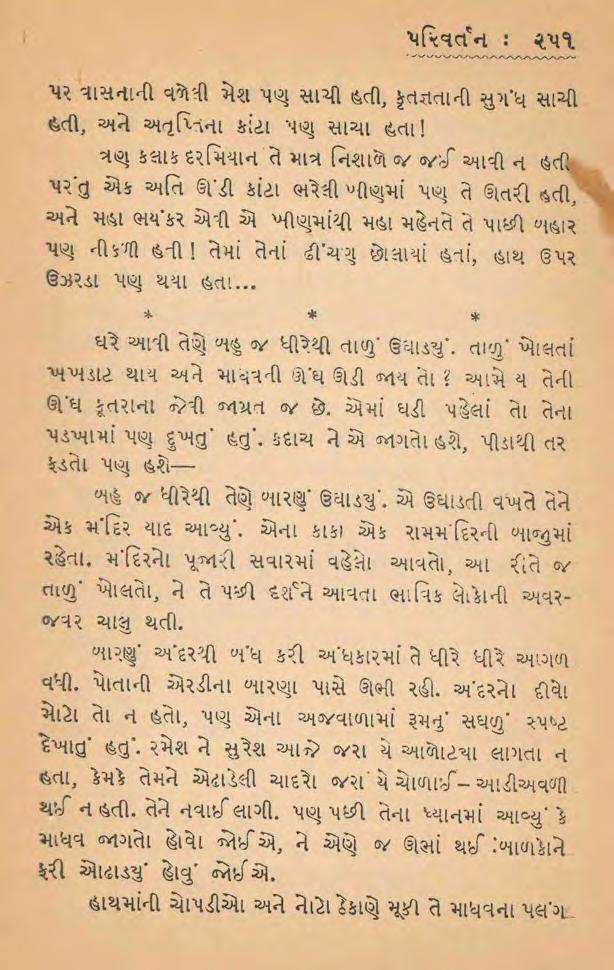 પરિવર્તન : ૨૫૧
પર વાસનાની વળેલી મેશ પણ સાચી હતી, કૃતજ્ઞતાની સુગંધ સાચી
હતી, અને અતૃપ્તિના કાંટા પણ સાચા હતા!
ત્રણ કલાક દરમિયાન તે માત્ર નિશાળે જ જઈ આવી ન હતી
પરંતુ એક અતિ ઊંડી કાંટા ભરેલી ખીણમાં પણ તે ઊતરી હતી,
અને મહા ભયંકર એવી એ ખીણમાંથી મહા મહેનતે તે પાછી બહાર
પણ નીકળી હતી! તેમાં તેનાં ઢીંચણ છોલાયાં હતાં, હાથ ઉપર
ઉઝરડા પણ થયા હતા...
* * *
ઘરે આવી તેણે બહુ જ ધીરેથી તાળું ઉઘાડ્યું. તાળું ખોલતાં
ખખડાટ થાય અને માધવની ઊંઘ ઊડી જાય તો? આમે ય તેની
ઊંઘ કૂતરાના જેવી જાગ્રત જ છે. એમાં ઘડી પહેલાં તો તેના
પડખામાં પણ દુખતું હતું. કદાચ ને એ જાગતો હશે, પીડાથી તર
ફડતો પણ હશે—
બહુ જ ધીરેથી તેણે બારણું ઉઘાડ્યું. એ ઉઘાડતી વખતે તેને
એક મંદિર યાદ આવ્યું. એના કાકા એક રામમંદિરની બાજુમાં
રહેતા. મંદિરનો પૂજારી સવારમાં વહેલો આવતો, આ રીતે જ
તાળું ખોલતો, ને તે પછી દર્શને આવતા ભાવિક લોકોની અવર-
જવર ચાલુ થતી.
બારણું અંદરથી બંધ કરી અંધકારમાં તે ધીરે ધીરે આગળ
વધી. પોતાની ઓરડીના બારણા પાસે ઊભી રહી. અંદરનો દીવો
મોટો તો ન હતો, પણ એના અજવાળામાં રૂમનું સઘળું સ્પષ્ટ
દેખાતું હતું. રમેશ ને સુરેશ આજે જરા યે આળોટ્યા લાગતા ન
હતા, કેમકે તેમને ઓઢાડેલી ચાદરો જરા યે ચોળાઈ – આડીઅવળી
થઈ ન હતી. તેને નવાઈ લાગી. પણ પછી તેના ધ્યાનમાં આવ્યું કે
માધવ જાગતો હોવો જોઈએ, ને એણે જ ઊભાં થઈ બાળકોને
ફરી ઓઢાડ્યું હોવું જોઈએ.
હાથમાંની ચોપડીઓ અને નોટો ઠેકાણે મૂકી તે માધવના પલંગ